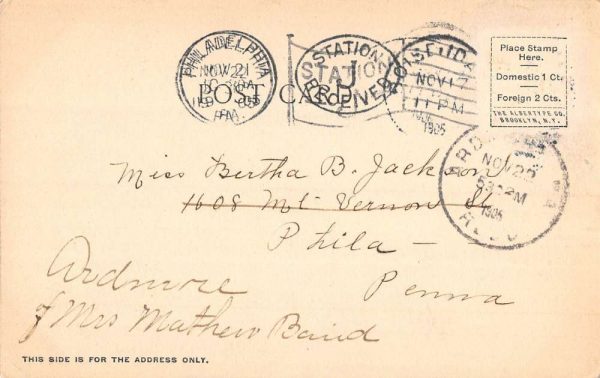 PHILADELPHIA
NOV 21
PA.
STATION
J
RECEIVED
BOISE, IDA
NOV 17
11 PM
1905
Place Stamp
Here.
Domestic 1 Ct.
Foreign 2 Cts.
THE ALBERTYPE CO.
BROOKLYN, N.Y.
POST CARD
NOV 22
1905
Miss Bertha B. Jackson
1608 Mt. Vernon St
Phila –
Penna
Ardmore
c/o Mrs Mathew Baird
THIS SIDE IS FOR THE ADDRESS ONLY.